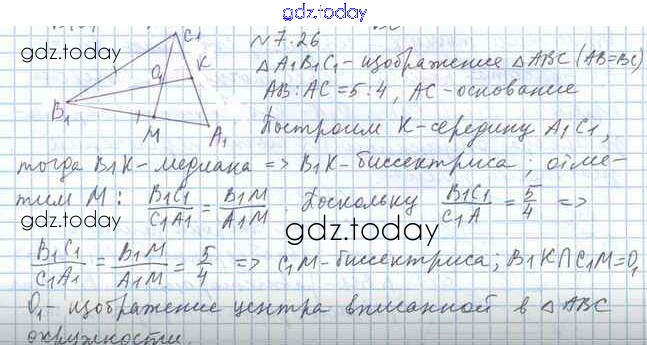 gdz.today
№ 7.26
gdz.today
C₁
O₁
K
B₁
M
A₁
△A₁B₁C₁ - изображение △ABC (AB=BC)
AB : AC = 5 : 4, AC - основание
Построим K - середину A₁C₁,
тогда B₁K - медиана => B₁K - биссектриса; отме-
тим M: B₁C₁/C₁A₁ = B₁M/A₁M. Поскольку B₁C₁/C₁A = 5/4 =>
gdz.today
gdz.today
B₁C₁/C₁A₁ = B₁M/A₁M = 5/4 => C₁M - биссектриса; B₁K∩C₁M=O₁
O₁ - изображение центра вписанной в △ABC
окружности.